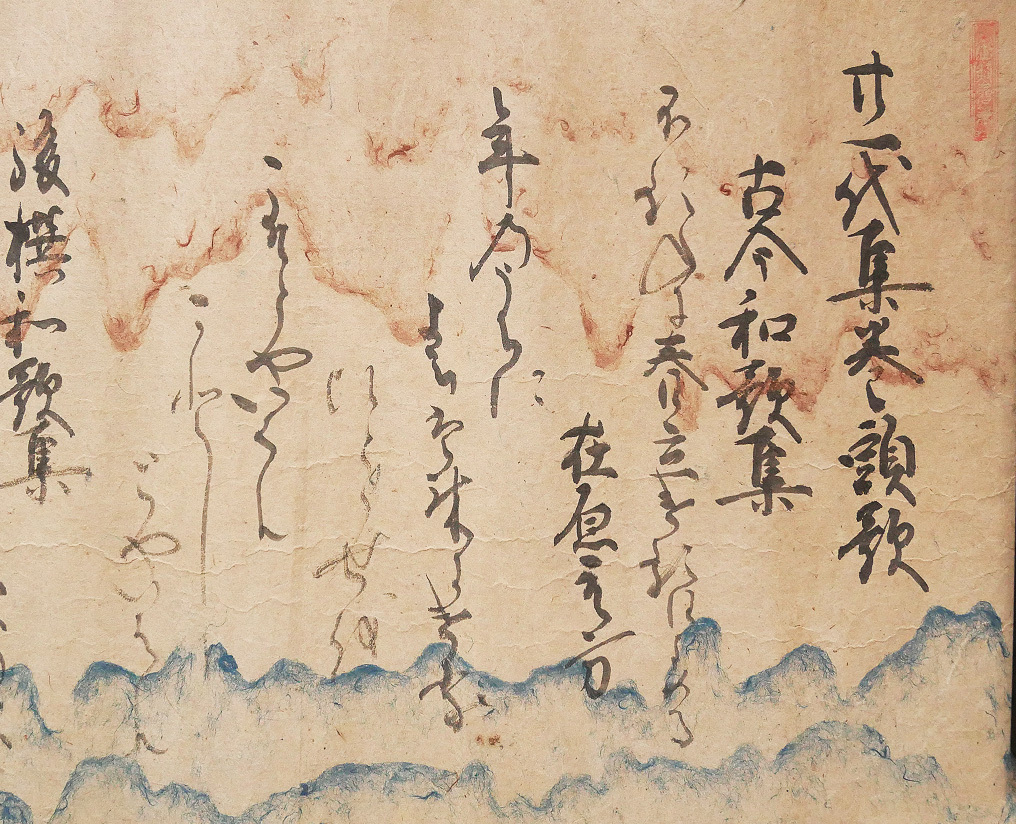 廿一代集巻頭歌
古今和歌集
ふるとしに春立ける日よめる
在原元方
年のうちに
はるは来にけり
ひとゝせを
こそとやいはん
ことし
とやいはん
後撰和歌集